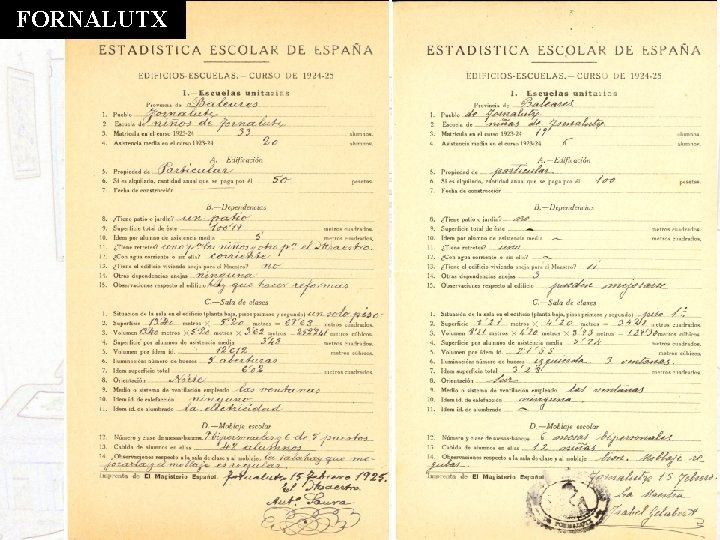 FORNALUTX
ESTADISTICA ESCOLAR DE ESPAÑA
EDIFICIOS-ESCUELAS.—CURSO DE 1924-25
I.—Escuelas unitarias
Provincia de Baleares
1. Pueblo Fornalutx
2. Escuela de niños de Fornalutx
3. Matrícula en el curso 1923-24 33 alumnos.
4. Asistencia media en el curso 1923-24 20 alumnos.
A. Edificación
5. Propiedad de Particular
6. Si es alquilado, cantidad anual que se paga por él 50 pesetas.
7. Fecha de construcción
B.—Dependencias
8. ¿Tiene patio o jardín? un patio
9. Superficie total de éste metros cuadrados.
10. Idem por alumno de asistencia media 5 metros cuadrados.
11. ¿Tiene retretes? uno para los niños y otro pª el Maestro.
12. ¿Con agua corriente o sin ella? corriente
13. ¿Tiene el edificio vivienda aneja para el Maestro? no
14. Otras dependencias anejas ninguna
15. Observaciones respecto al edificio hay que hacer reformas
C.—Sala de clases
1. Situación de la sala en el edificio (planta baja, pisos primero y segundo) un solo piso
2. Superficie metros × 5'20 metros = metros cuadrados.
3. Volumen metros × 5'20 metros × 3'62 metros = metros cúbicos.
4. Superficie por alumno de asistencia media metros cuadrados.
5. Volumen por idem id. metros cúbicos.
6. Iluminación: número de huecos 5 aberturas
7. Idem superficie total 6'02 metros cuadrados.
8. Orientación Norte
9. Medio o sistema de ventilación empleado las ventanas
10. Idem id. de calefacción ninguno
11. Idem de alumbrado la electricidad
D.—Moblaje escolar
12. Número y clase de mesas-bancos 9 bipersonales y 6 de 5 puestos
13. Cabida de alumnos en ellas 48 alumnos
14. Observaciones respecto a la sala de clase y al moblaje la sala hay que me-
jorarla y el moblaje es regular.
Imprenta de El Magisterio Español. Fornalutx 15 Febrero 1925.
El Maestro
Antº Saura
ESTADISTICA ESCOLAR DE ESPAÑA
EDIFICIOS-ESCUELAS.—CURSO DE 1924-25
I. Escuelas unitarias
Provincia de Baleares
1. Pueblo de Fornalutx
2. Escuela de niñas de Fornalutx
3. Matrícula en el curso 1923-24 alumnos.
4. Asistencia media en el curso 1923-24 alumnos.
A.—Edificación
5. Propiedad de particular
6. Si es alquilado, cantidad anual que se paga por él 100 pesetas.
7. Fecha de construcción
B.—Dependencias
8. ¿Tiene patio o jardín? no
9. Superficie total de éste - metros cuadrados.
10. Idem por alumno de asistencia media - metros cuadrados.
11. ¿Tiene retretes? uno
12. ¿Con agua corriente o sin ella? -
13. ¿Tiene el edificio vivienda aneja para el Maestro? sí
14. Otras dependencias anejas 3
15. Observaciones respecto al edificio puede mejorarse
C.—Sala de clases
1. Situación de la sala en el edificio (planta baja, pisos primero y segundo) piso 1º
2. Superficie metros × metros = metros cuadrados.
3. Volumen metros × metros × metros = metros cúbicos.
4. Superficie por alumno de asistencia media metros cuadrados.
5. Volumen por idem id. metros cúbicos.
6. Iluminación: número de huecos izquierda 3 ventanas
7. Idem superficie total metros cuadrados.
8. Orientación Sur
9. Medio o sistema de ventilación empleado las ventanas
10. Idem id. de calefacción ninguna
11. Idem de alumbrado -
D.—Moblaje escolar
12. Número y clase de mesas-bancos 6 mesas bipersonales
13. Cabida de alumnos en ellas 12 niñas
14. Observaciones respecto a la sala de clase y al moblaje Moblaje re-
gular.
Imprenta de El Magisterio Español. Fornalutx 15 Febrero
La Maestra
Isabel Gelabert
FORNALUTX